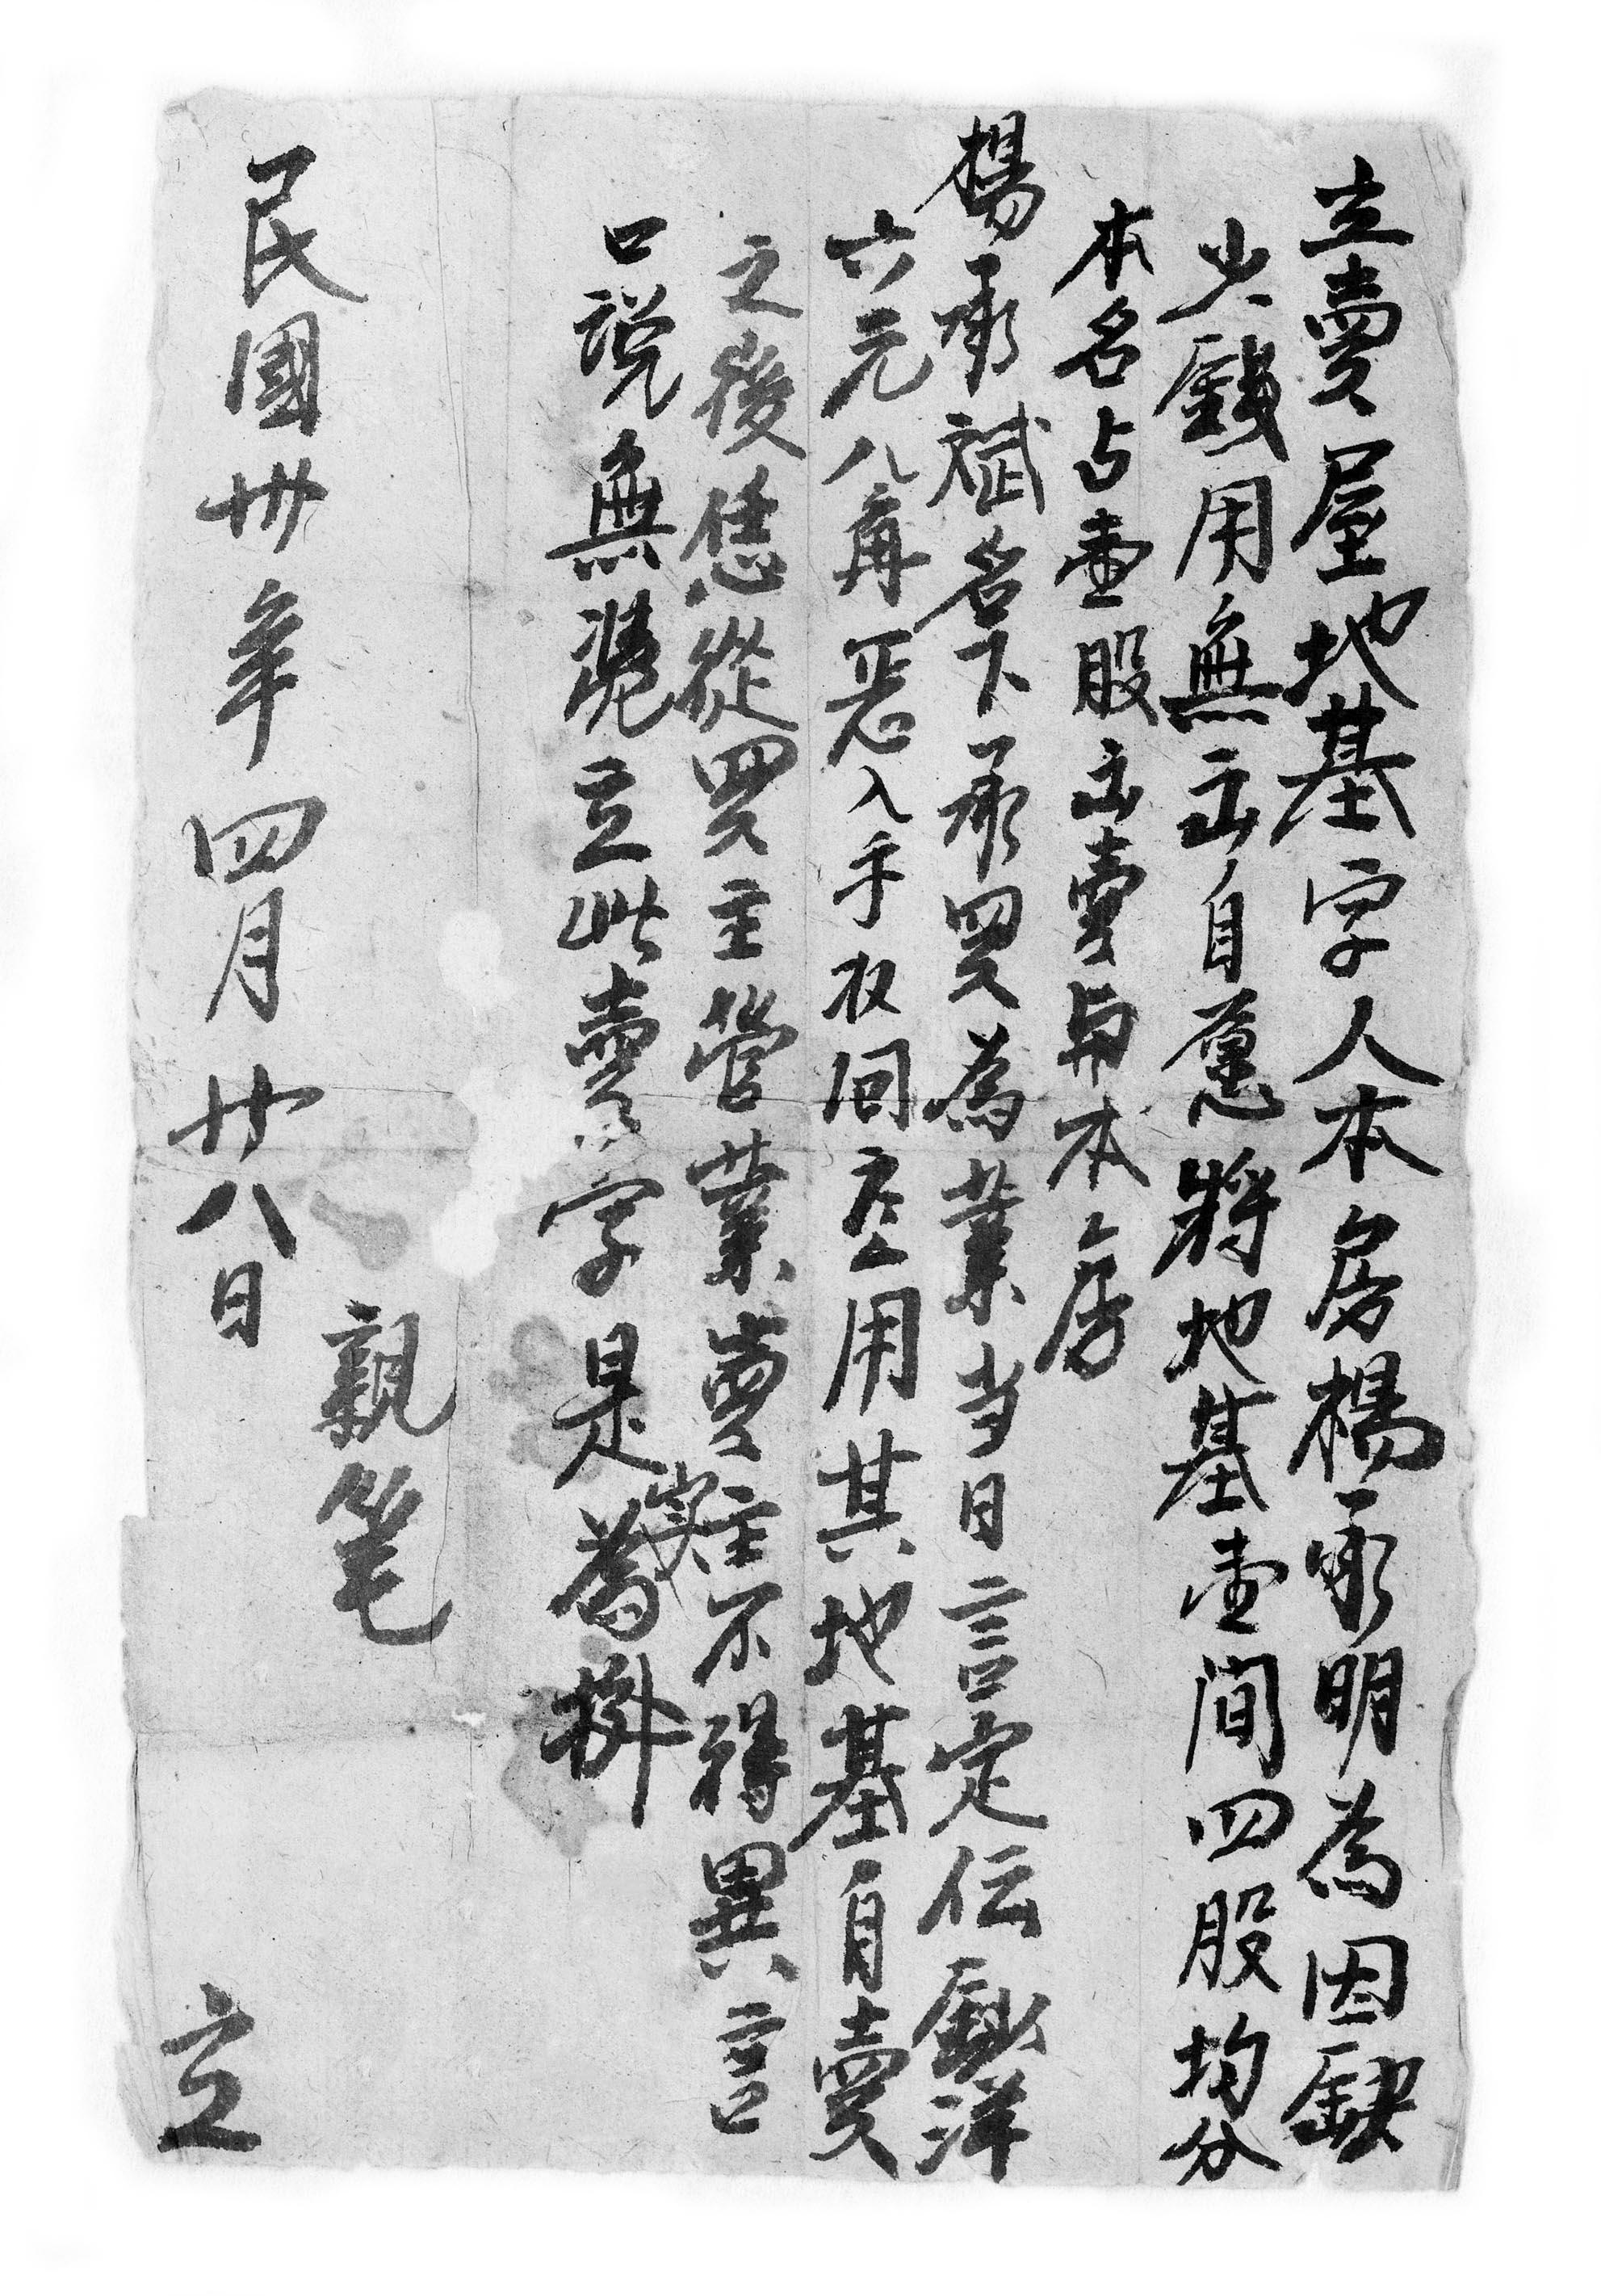 立賣屋地基字人本房楊承明為因缺
少錢用無出自愿將地基壹間四股均分
本名占壹股出賣與本房
楊承斌名下承買為業当日言定伝鈔洋
六元八角 入手收回应用其地基自賣
之後恁從買主管業賣主不得異言
口說無憑立此賣字是為
實
親笔
民國卅年四月廿八日 立